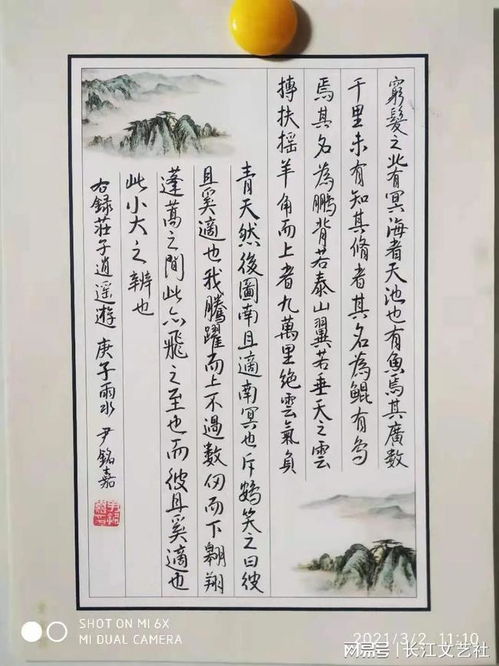 窮髮之北有冥海者天池也有魚焉其廣數
千里未有知其脩者其名為鯤有鳥
焉其名為鵬背若泰山翼若垂天之雲
摶扶搖羊角而上者九萬里絕雲氣負
青天然後圖南且適南冥也斥鴳笑之曰彼
且奚適也我騰躍而上不過數仞而下翱翔
蓬蒿之間此亦飛之至也而彼且奚適也
此小大之辨也
右録莊子逍遥遊 庚子雨水 尹銘嘉
SHOT ON MI 6X
MI DUAL CAMERA
2021/3/2 11:10
网易号 | 长江文艺社